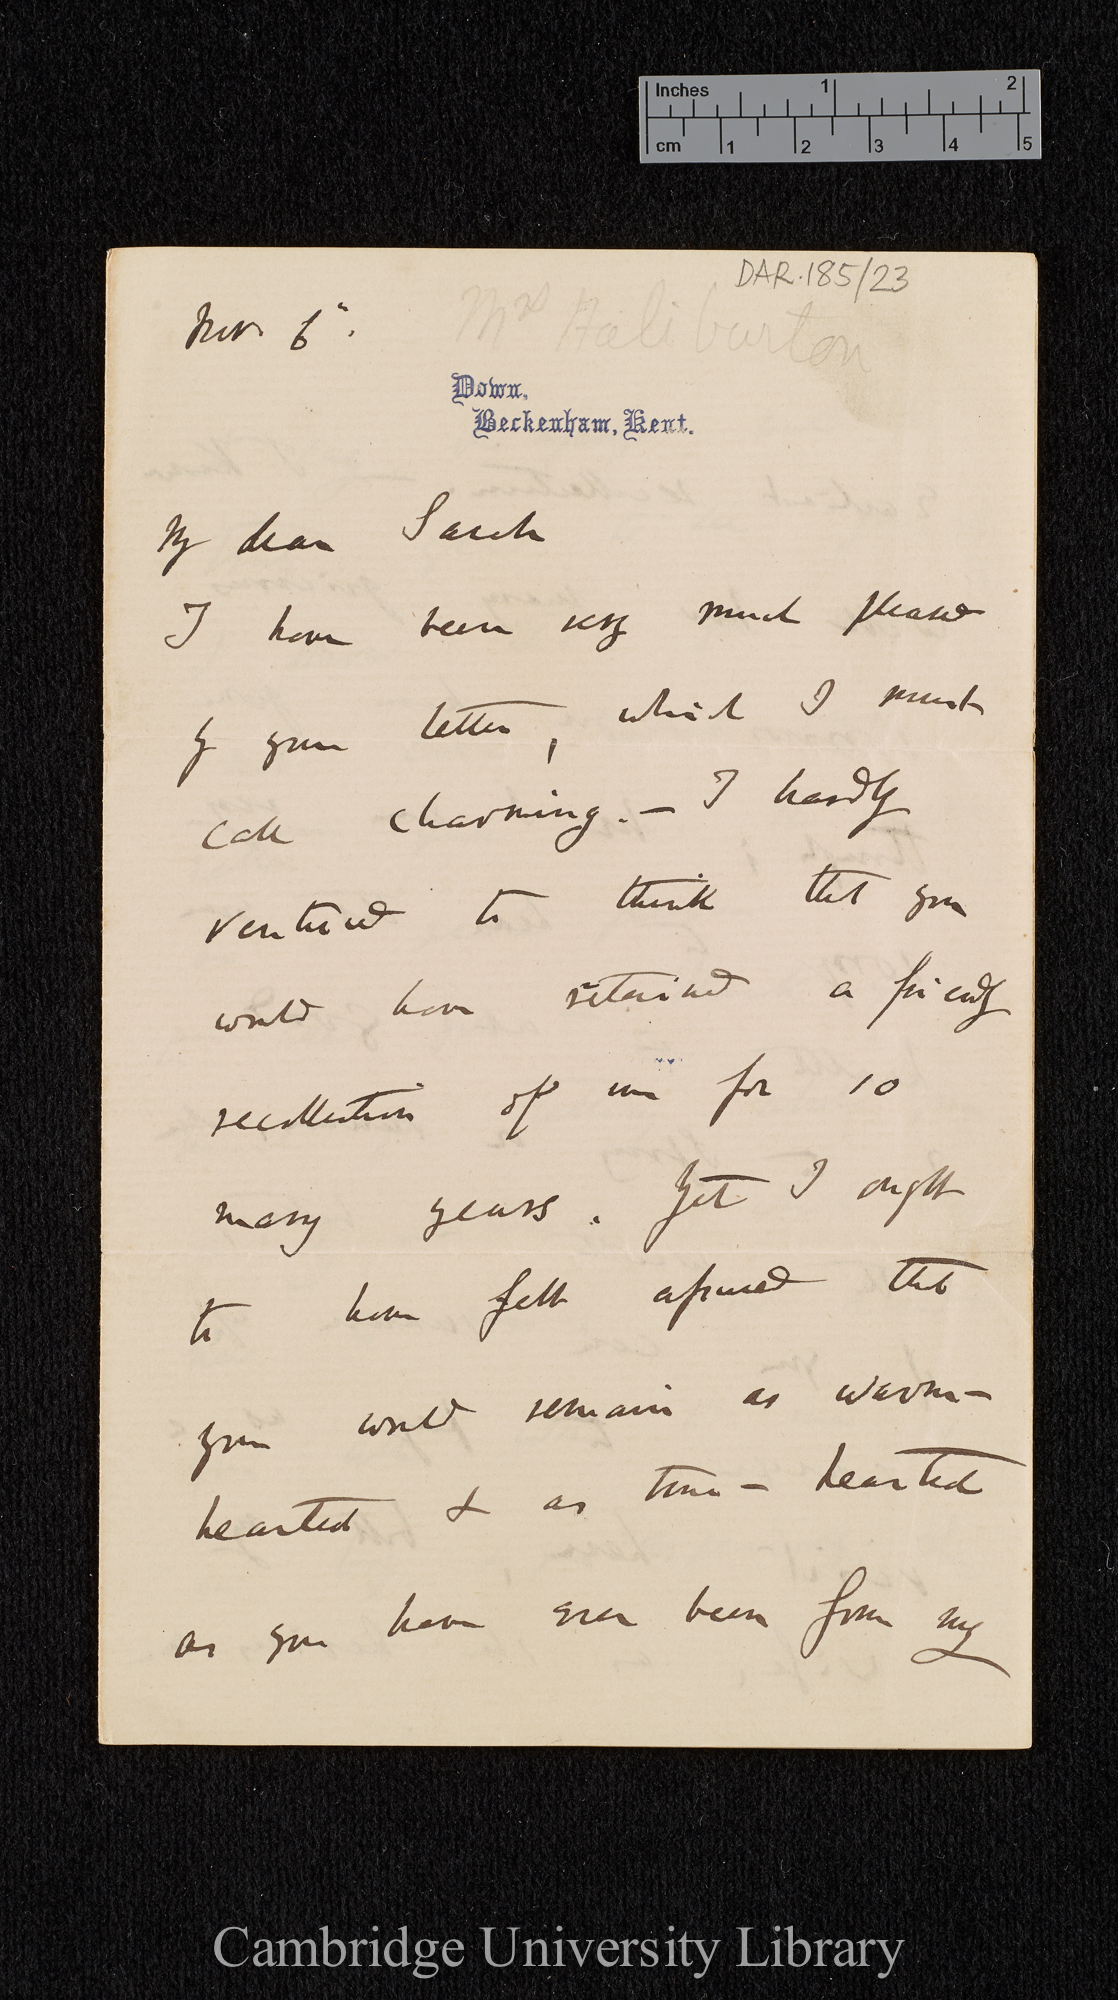 Inches 1 2
cm 1 2 3 4 5
DAR.185/23
Mrs Haliburton
Nov. 6th.
Down,
Beckenham, Kent.
My dear Sarah
I have been very much pleased
by your letter, which I must
call charming. — I hardly
ventured to think that you
would have retained a friendly
recollection of me for so
many years. Yet I ought
to have felt assured that
you would remain as warm-
hearted & as true-hearted
as you have ever been from my
Cambridge University Library